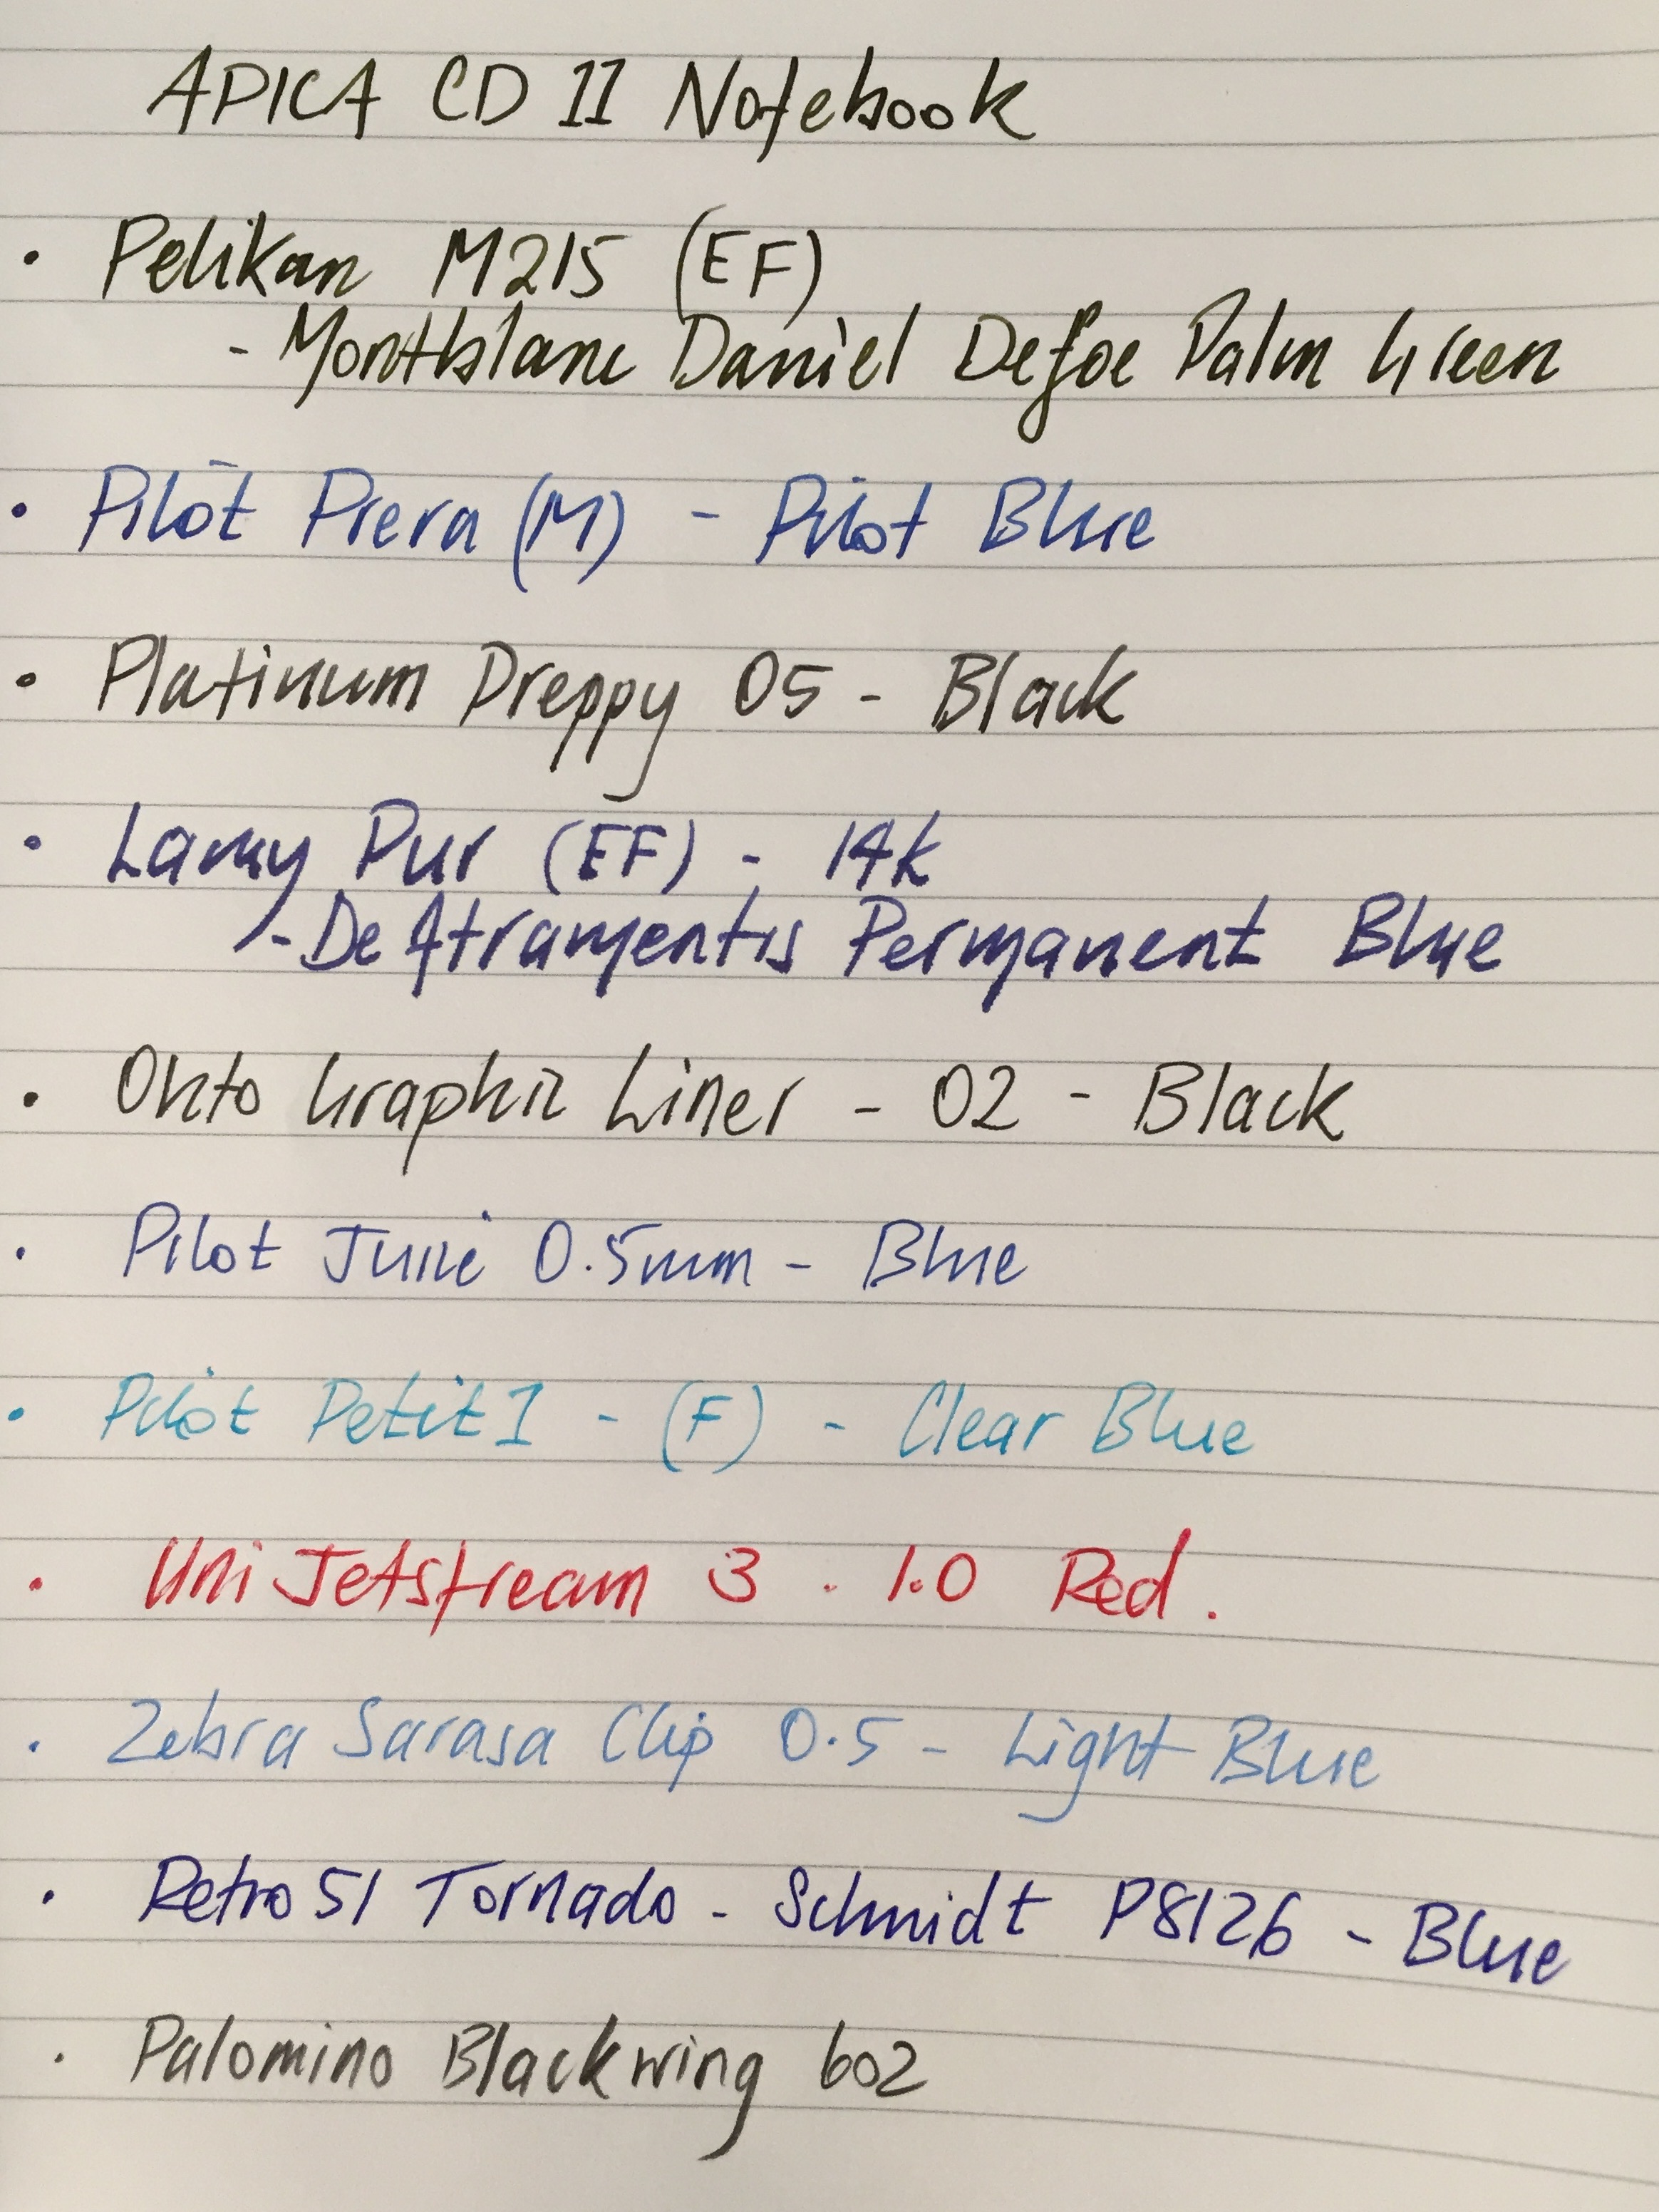 APICA CD 11 Notebook
• Pelikan M215 (EF)
- Montblanc Daniel Defoe Palm Green
• Pilot Prera (M) - Pilot Blue
• Platinum Preppy 05 - Black
• Lamy Pur (EF) - 14k
- De Atramentis Permanent Blue
• Ohto Graphic Liner - 02 - Black
• Pilot Juice 0.5mm - Blue
• Pilot Petit1 - (F) - Clear Blue
• Uni Jetstream 3 . 1.0 Red.
• Zebra Sarasa Clip 0.5 - Light Blue
• Retro 51 Tornado - Schmidt P8126 - Blue
• Palomino Blackwing 602